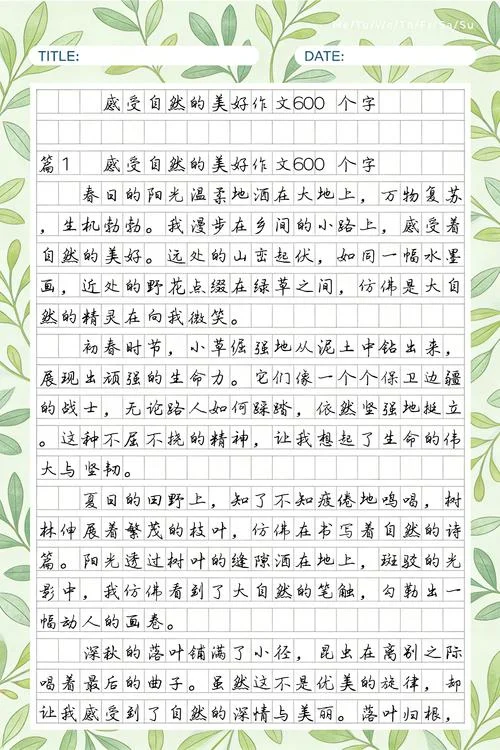 Me/Tu/We/Th/Fr/Sa/Su
TITLE:
DATE:
感受自然的美好作文600 个字
篇1 感受自然的美好作文600 个字
春日的阳光温柔地洒在大地上，万物复苏
，生机勃勃。我漫步在乡间的小路上，感受着
自然的美好。远处的山峦起伏，如同一幅水墨
画，近处的野花点缀在绿草之间，仿佛是大自
然的精灵在向我微笑。
初春时节，小草倔强地从泥土中钻出来，
展现出顽强的生命力。它们像一个个保卫边疆
的战士，无论路人如何蹂踏，依然坚强地挺立
。这种不屈不挠的精神，让我想起了生命的伟
大与坚韧。
夏日的田野上，知了不知疲倦地鸣唱，树
林伸展着繁茂的枝叶，仿佛在书写着自然的诗
篇。阳光透过树叶的缝隙洒在地上，斑驳的光
影中，我仿佛看到了大自然的笔触，勾勒出一
幅动人的画卷。
深秋的落叶铺满了小径，昆虫在离别之际
唱着最后的曲子。虽然这不是优美的旋律，却
让我感受到了自然的深情与美丽。落叶归根，